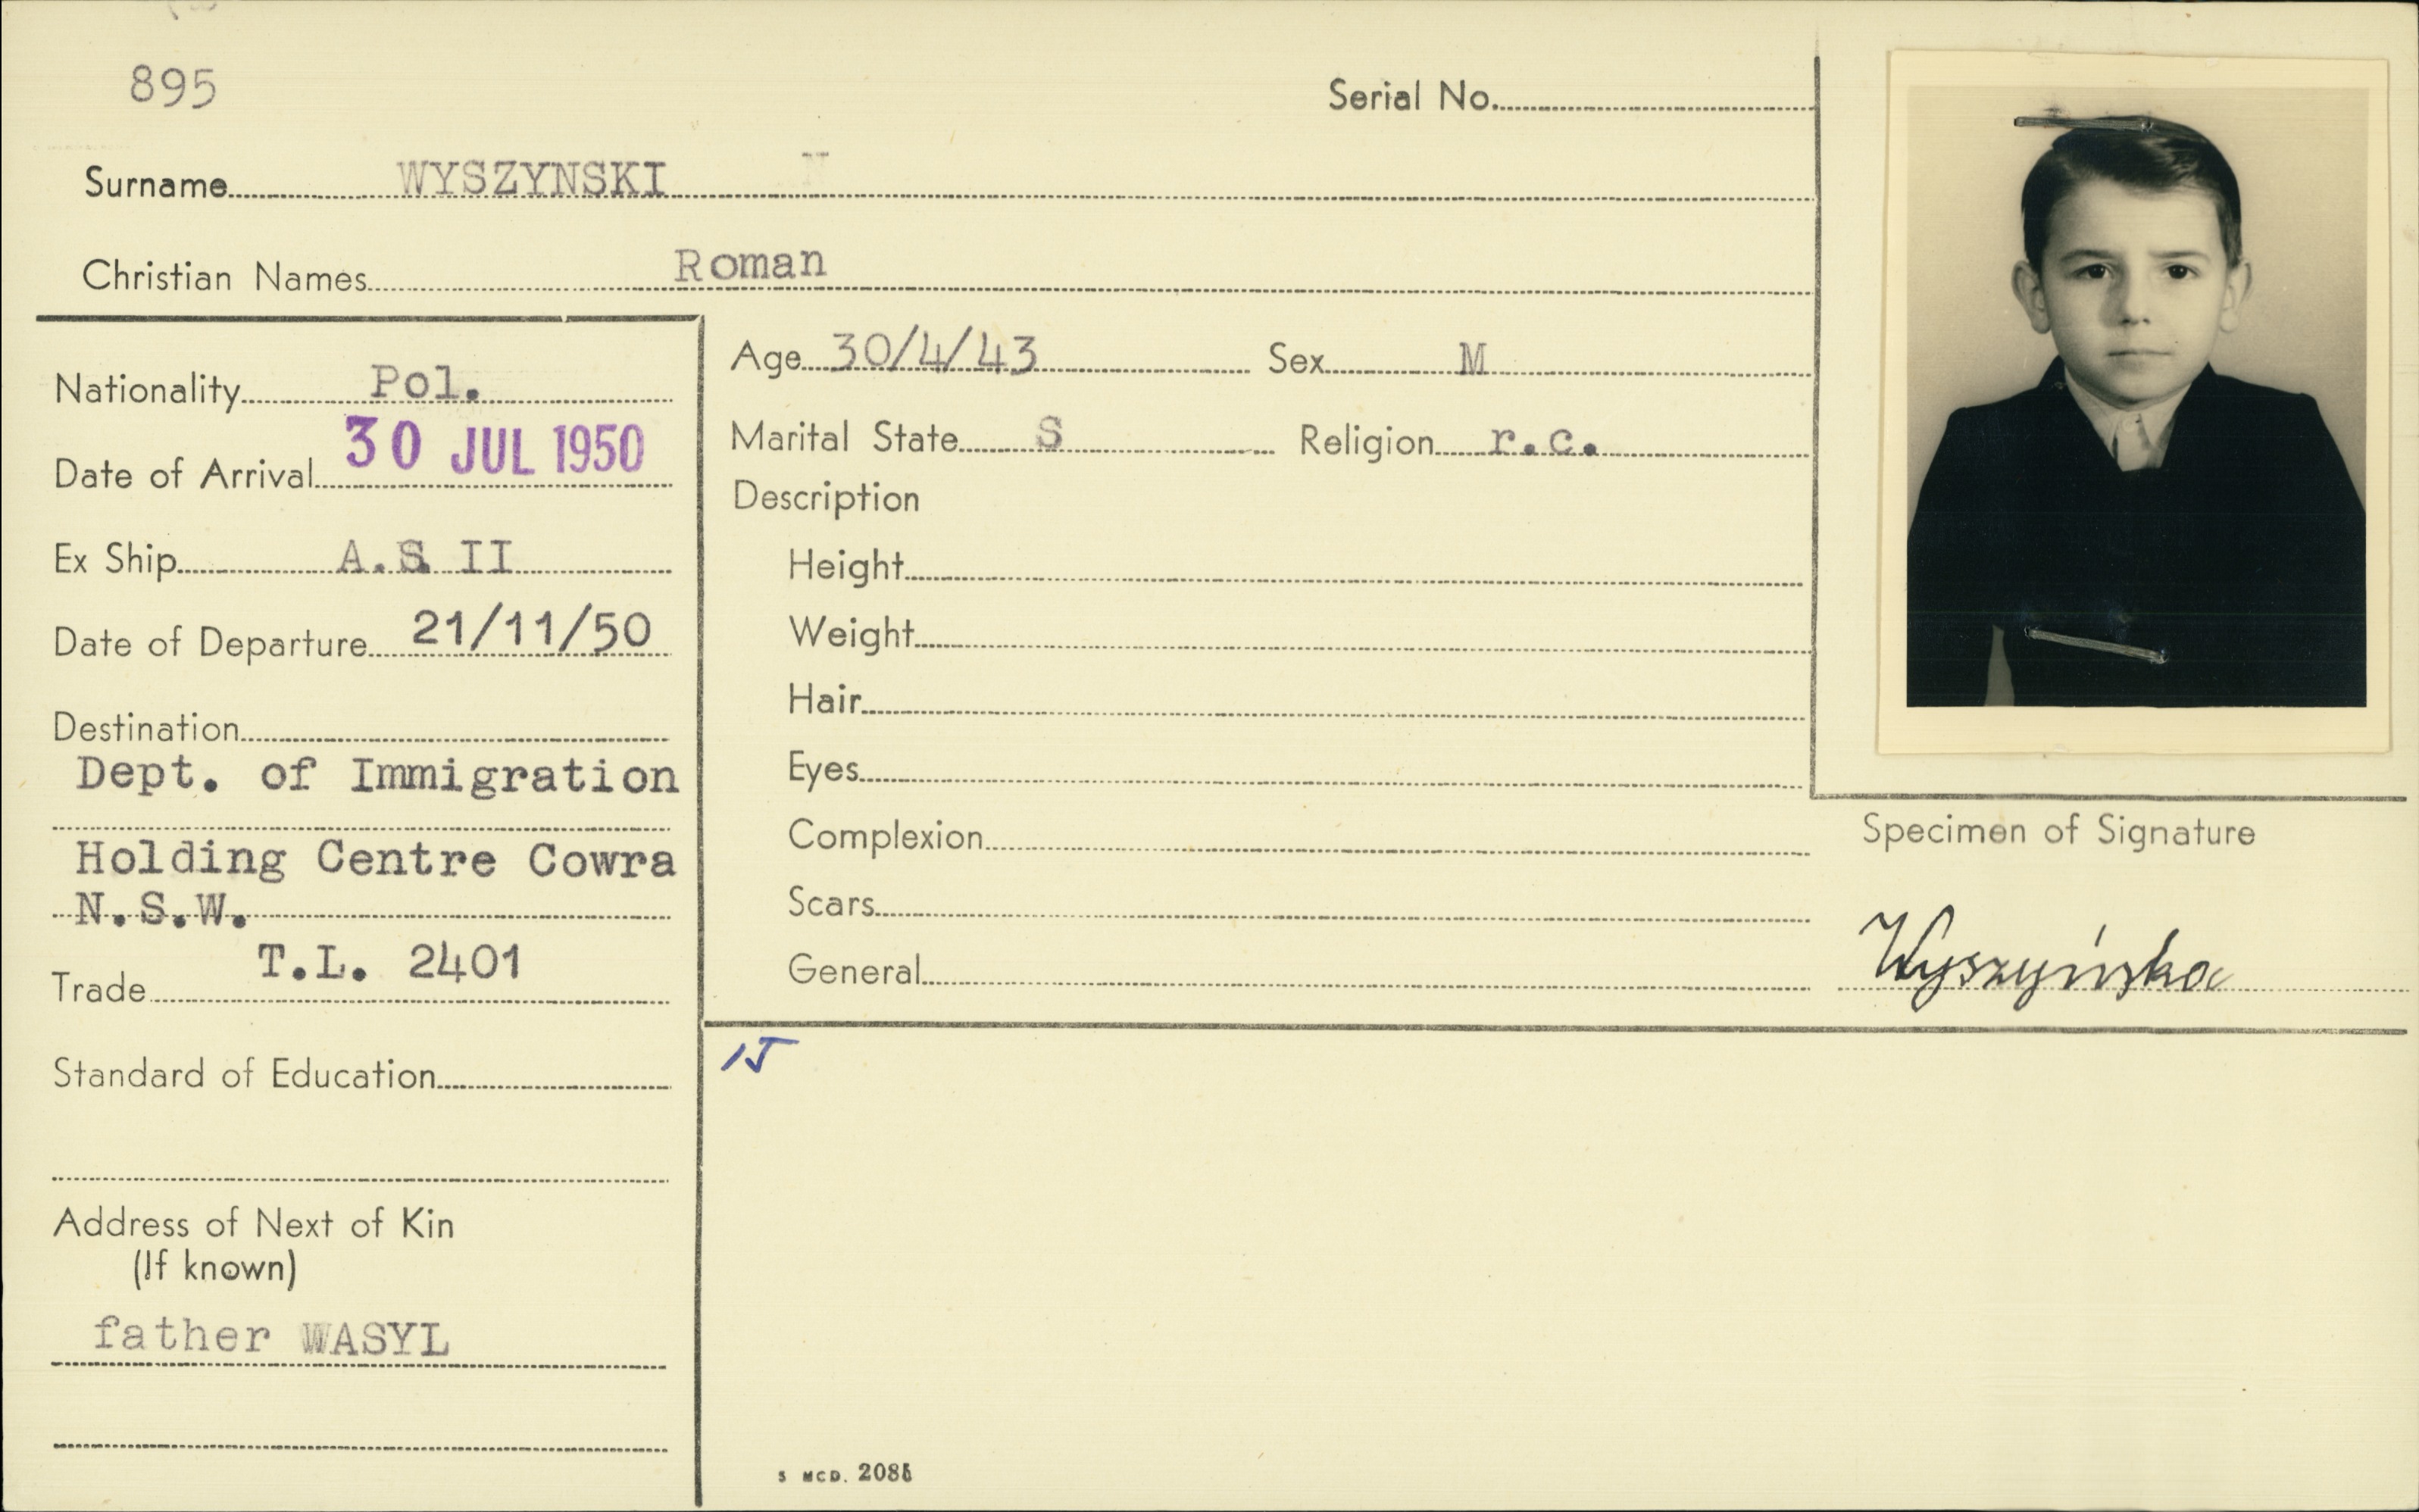 895
Serial No.
Surname WYSZYNSKI N
Christian Names Roman
Nationality Pol.
Date of Arrival 30 JUL 1950
Ex Ship A.S. II
Date of Departure 21/11/50
Destination
Dept. of Immigration
Holding Centre Cowra
N.S.W.
T.L. 2401
Trade
Standard of Education
Address of Next of Kin
(If known)
father WASYL
Age 30/4/43 Sex M
Marital State S Religion r.c.
Description
Height
Weight
Hair
Eyes
Complexion
Scars
General
Specimen of Signature
Wyszyńska
S MCD.